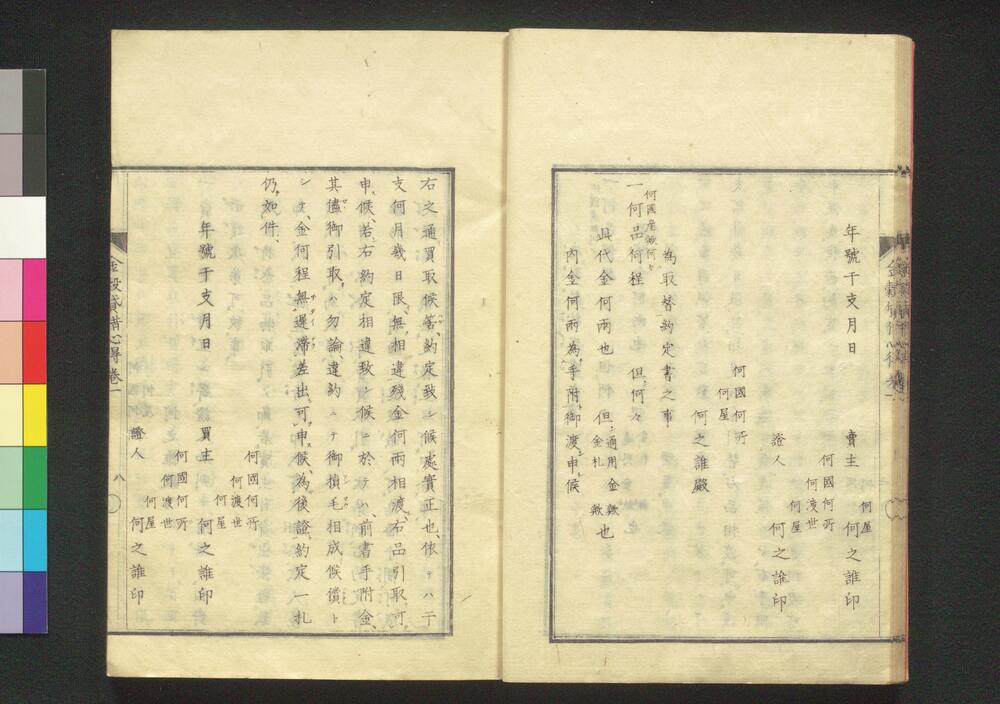 年號干支月日
何屋
賣主 何之誰印
何國何所
何渡世
何屋
證人 何之誰印
何國何所
何屋
何之誰殿
為取替約定書之事
何國産歟何々
一何品何程
此代金何両也 但シ何々
但シ通用金歟金札歟也
内金何両為手附御渡申候
右之通買取候筈約定致シ候處實正也依テハ干
支何月幾日限無相違殘金何両相渡右品引取可
申候若右約定相違致シ候ニ於テハ前書手附金
其儘御引取ハ勿論違約ニテ御損毛相成候償ト
シテ金何程無遲滞差出可申候為後證約定一札
仍如件
年號干支月日
何國何所
何渡世
何屋
買主 何之誰印
何國何所
何渡世
何屋
證人 何之誰印
金穀貸借心得卷一 八